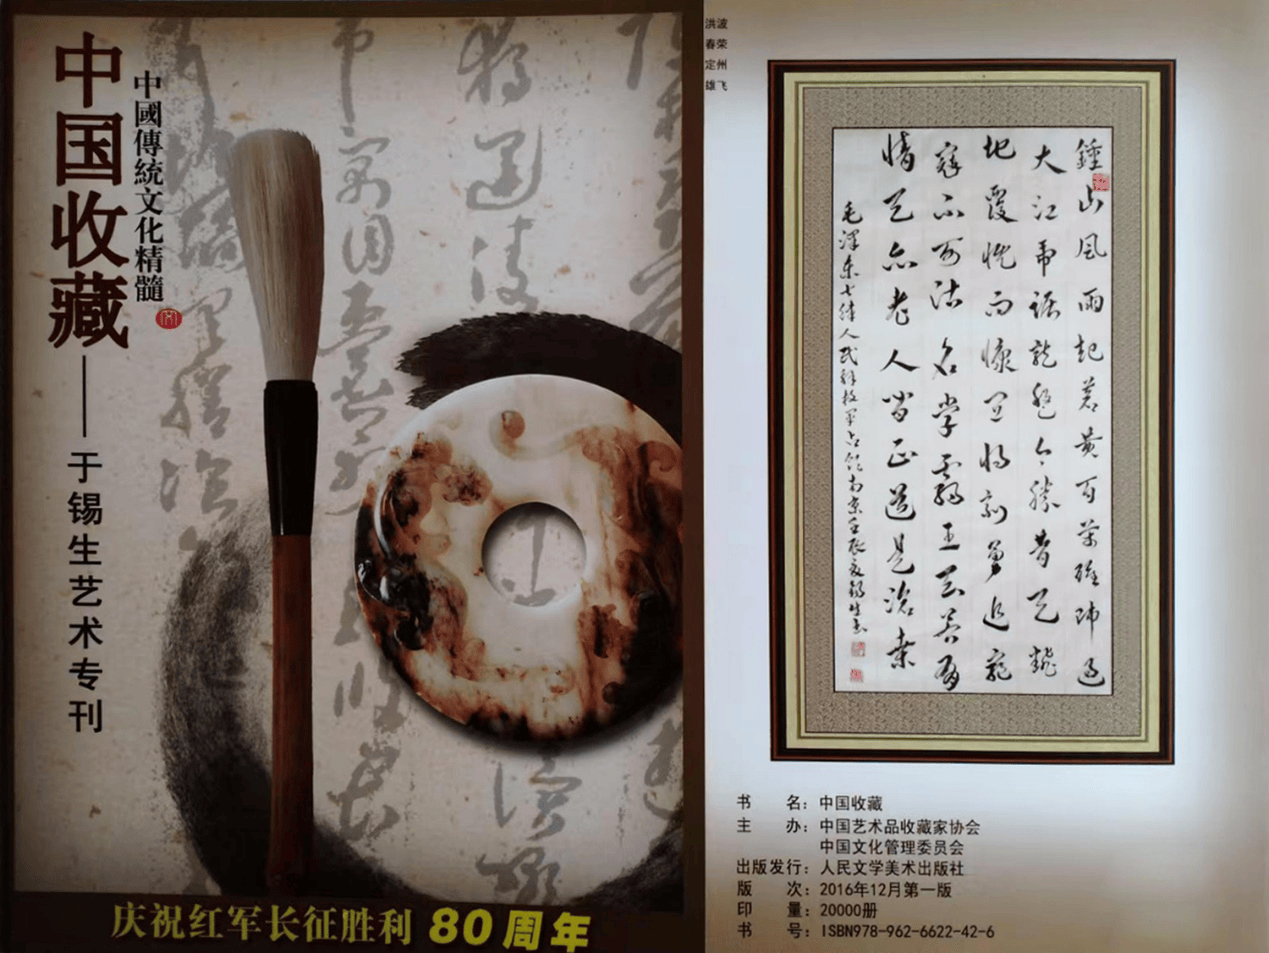 中国收藏——于锡生艺术专刊
中國傳統文化精髓
庆祝红军长征胜利 80 周年
洪波
春荣
定州
雄飞
鍾山风雨起蒼黄百萬雄师过
大江虎踞龍盤今勝昔天翻
地覆慨而慷宜将剩勇追窮
寇不可沽名学霸王天若有
情天亦老人间正道是滄桑
毛澤东七律人民解放军占领南京壬辰夏锡生书
书　　名：中国收藏
主　　办：中国艺术品收藏家协会
中国文化管理委员会
出版发行：人民文学美术出版社
版　　次：2016年12月第一版
印　　量：20000册
书　　号：ISBN978-962-6622-42-6